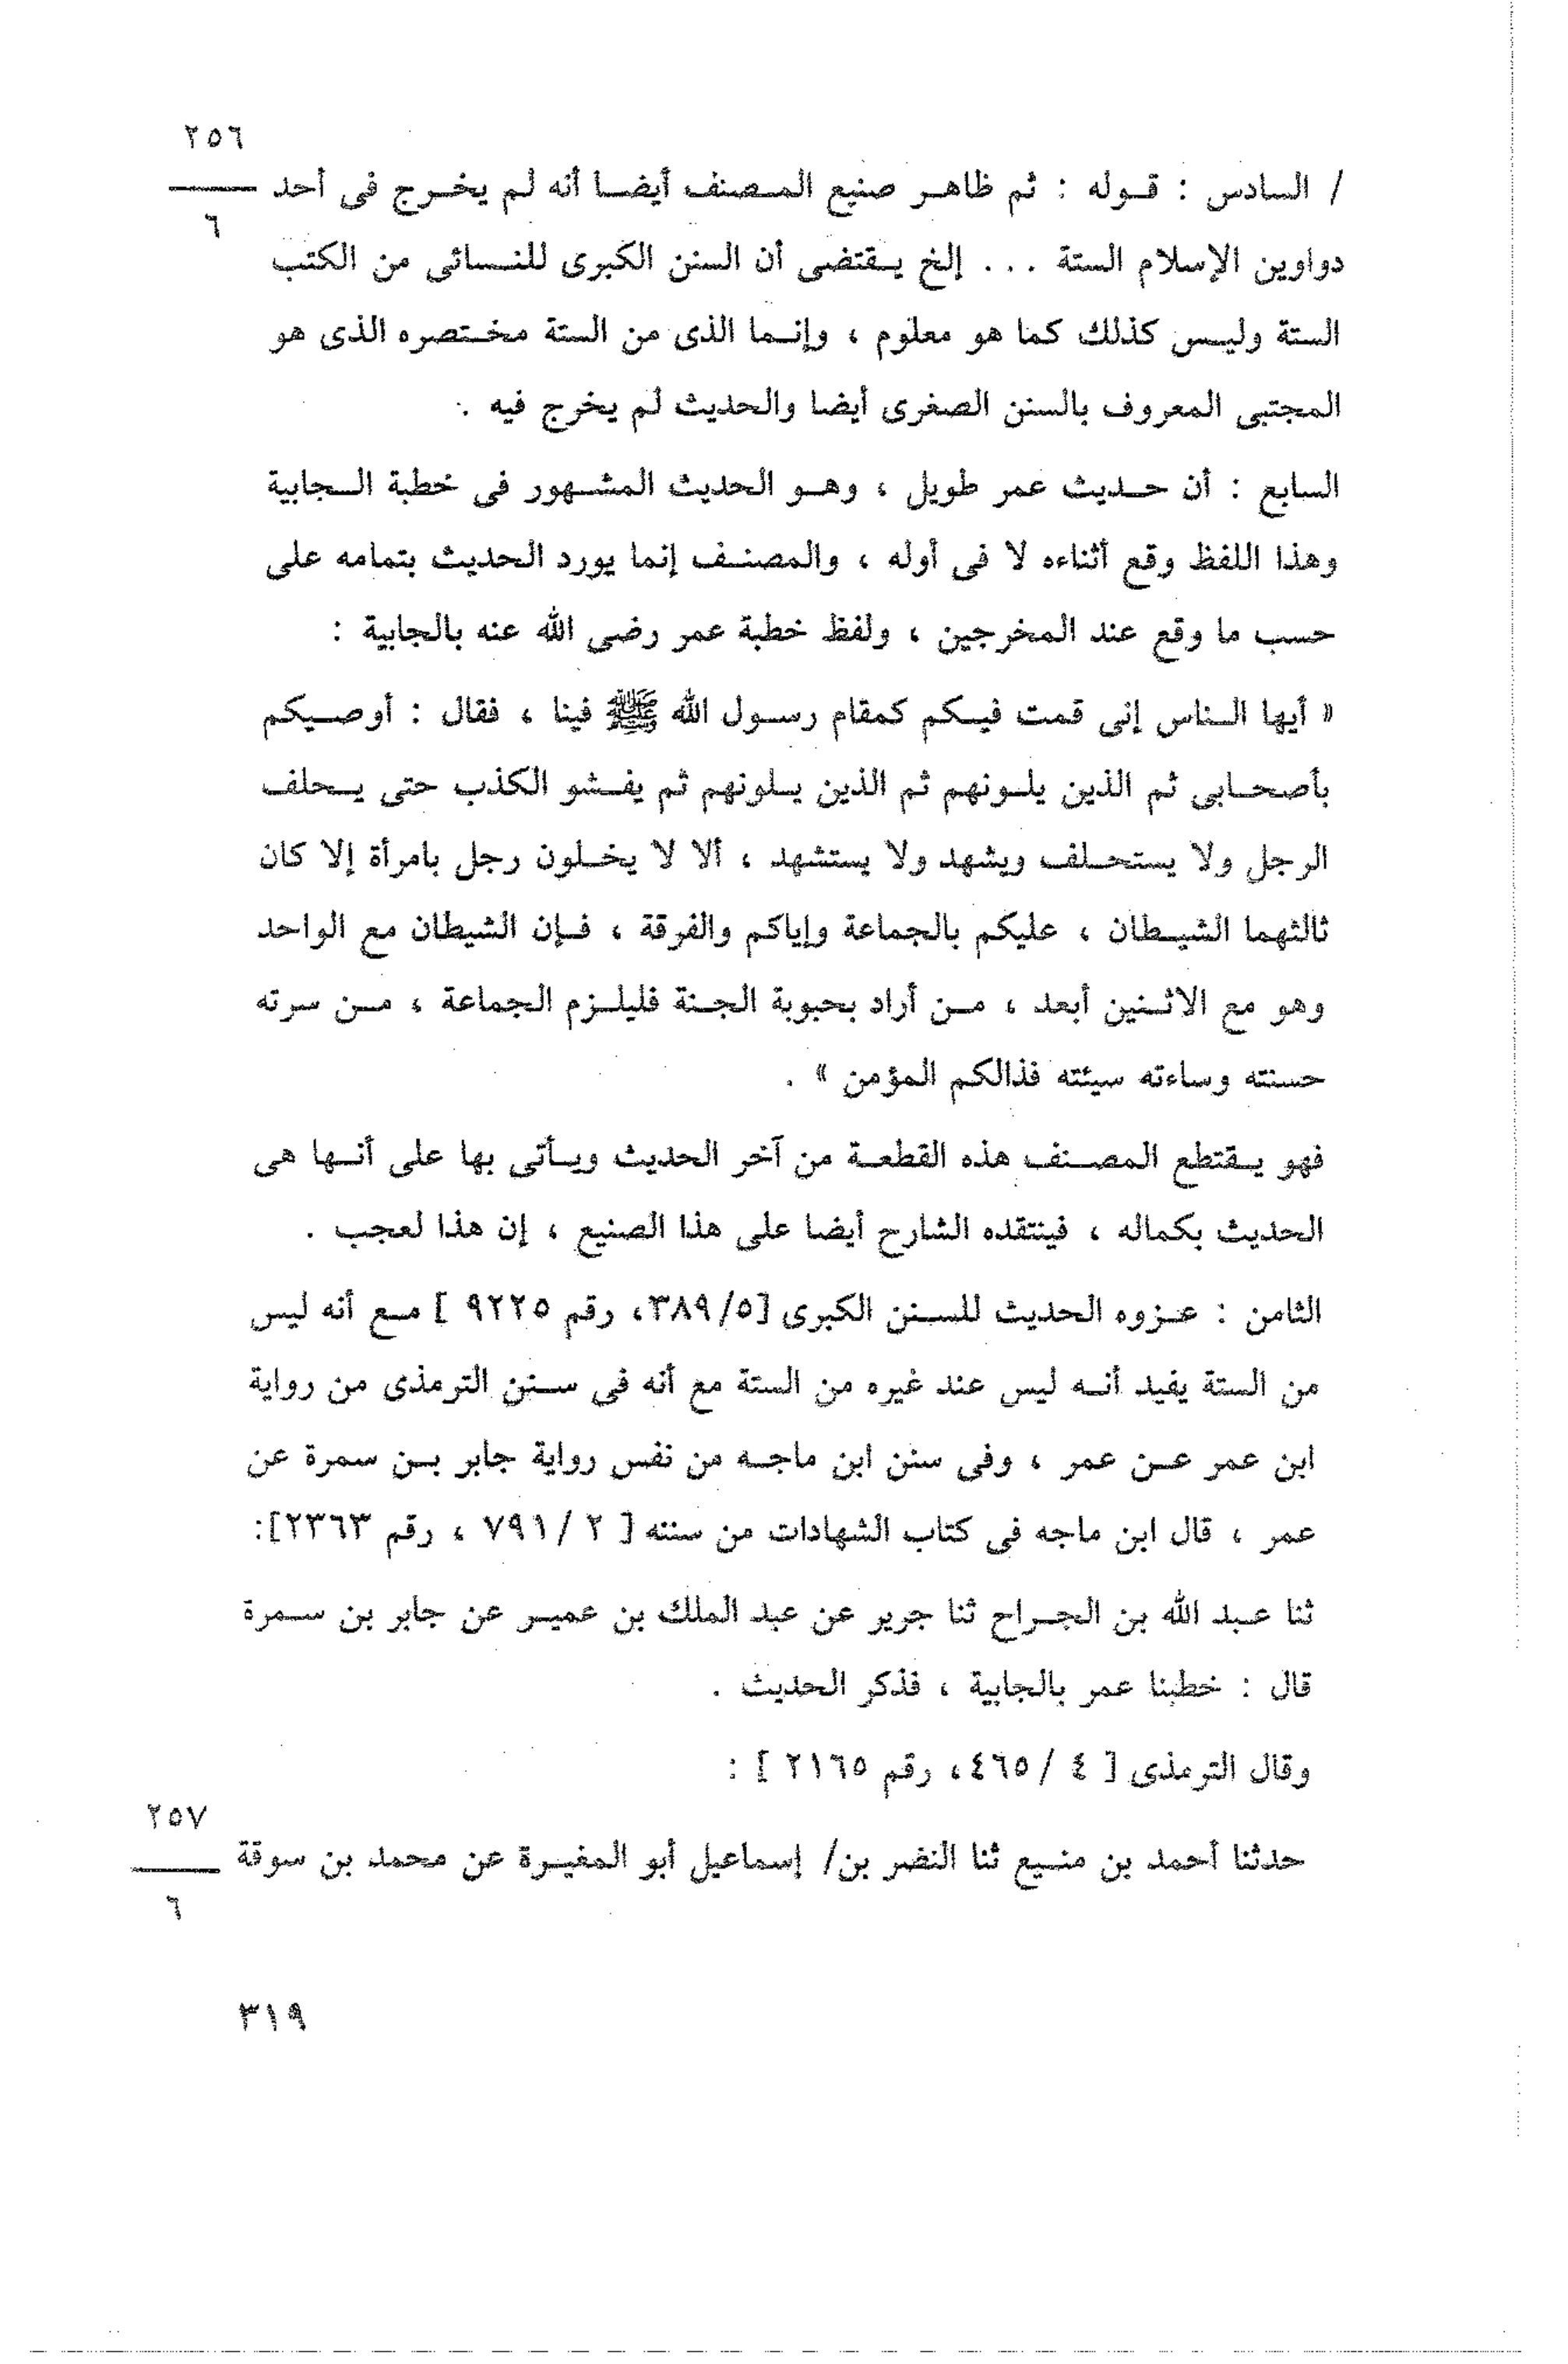 ٢٥٦
/ السادس : قوله : ثم ظاهر صنيع المصنف أيضا أنه لم يخرج فى أحد
٦
دواوين الإسلام الستة . . . إلخ يقتضى أن السنن الكبرى للنسائى من الكتب
الستة وليس كذلك كما هو معلوم ، وإنما الذى من الستة مختصره الذى هو
المجتبى المعروف بالسنن الصغرى أيضا والحديث لم يخرج فيه .
السابع : أن حديث عمر طويل ، وهو الحديث المشهور فى خطبة الجابية
وهذا اللفظ وقع أثناءه لا فى أوله ، والمصنف إنما يورد الحديث بتمامه على
حسب ما وقع عند المخرجين ، ولفظ خطبة عمر رضى الله عنه بالجابية :
« أيها الناس إنى قمت فيكم كمقام رسول الله ﷺ فينا ، فقال : أوصيكم
بأصحابى ثم الذين يلونهم ثم الذين يلونهم ثم يفشو الكذب حتى يحلف
الرجل ولا يستحلف ويشهد ولا يستشهد ، ألا لا يخلون رجل بامرأة إلا كان
ثالثهما الشيطان ، عليكم بالجماعة وإياكم والفرقة ، فإن الشيطان مع الواحد
وهو مع الاثنين أبعد ، من أراد بحبوبة الجنة فليلزم الجماعة ، من سرته
حسنته وساءته سيئته فذالكم المؤمن » .
فهو يقتطع المصنف هذه القطعة من آخر الحديث ويأتى بها على أنها هى
الحديث بكماله ، فينتقده الشارح أيضا على هذا الصنيع ، إن هذا لعجب .
الثامن : عزوه الحديث للسنن الكبرى [٣٨٩/٥، رقم ٩٢٢٥ ] مع أنه ليس
من الستة يفيد أنه ليس عند غيره من الستة مع أنه فى سنن الترمذى من رواية
ابن عمر عن عمر ، وفى سنن ابن ماجه من نفس رواية جابر بن سمرة عن
عمر ، قال ابن ماجه فى كتاب الشهادات من سننه [ ٢ / ٧٩١ ، رقم ٢٣٦٣]:
ثنا عبد الله بن الجراح ثنا جرير عن عبد الملك بن عمير عن جابر بن سمرة
قال : خطبنا عمر بالجابية ، فذكر الحديث .
وقال الترمذى [ ٤ / ٤٦٥، رقم ٢١٦٥ ] :
٢٥٧
حدثنا أحمد بن منيع ثنا النضر بن/ إسماعيل أبو المغيرة عن محمد بن سوقة
٦
٣١٩